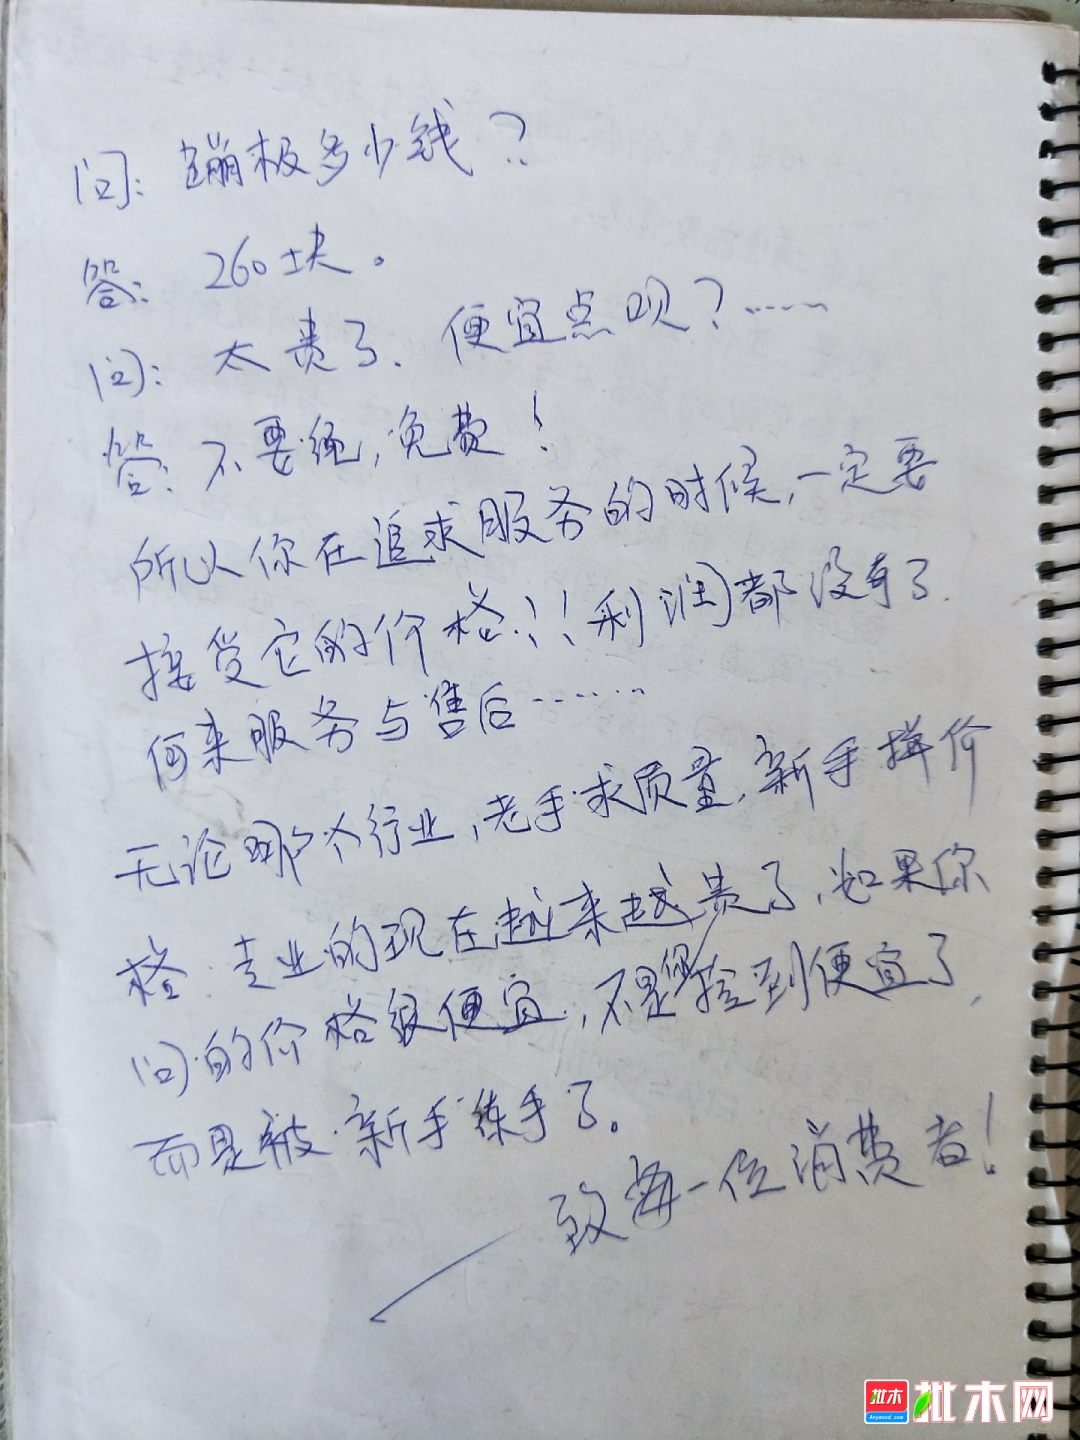 问：蹦极多少钱？
答：260块。
问：太贵了．便宜点呗？……
答：不要绳，免费！
所以你在追求服务的时候，一定要
接受它的价格！！利润都没有了．
何来服务与售后……
无论哪个行业，老手求质量，新手拼价
格．专业的现在越来越贵了，如果你
问的价格很便宜，不是你捡到便宜了，
而是被新手练手了。
——致每一位消费者！
批木
Anywood.com
批木网